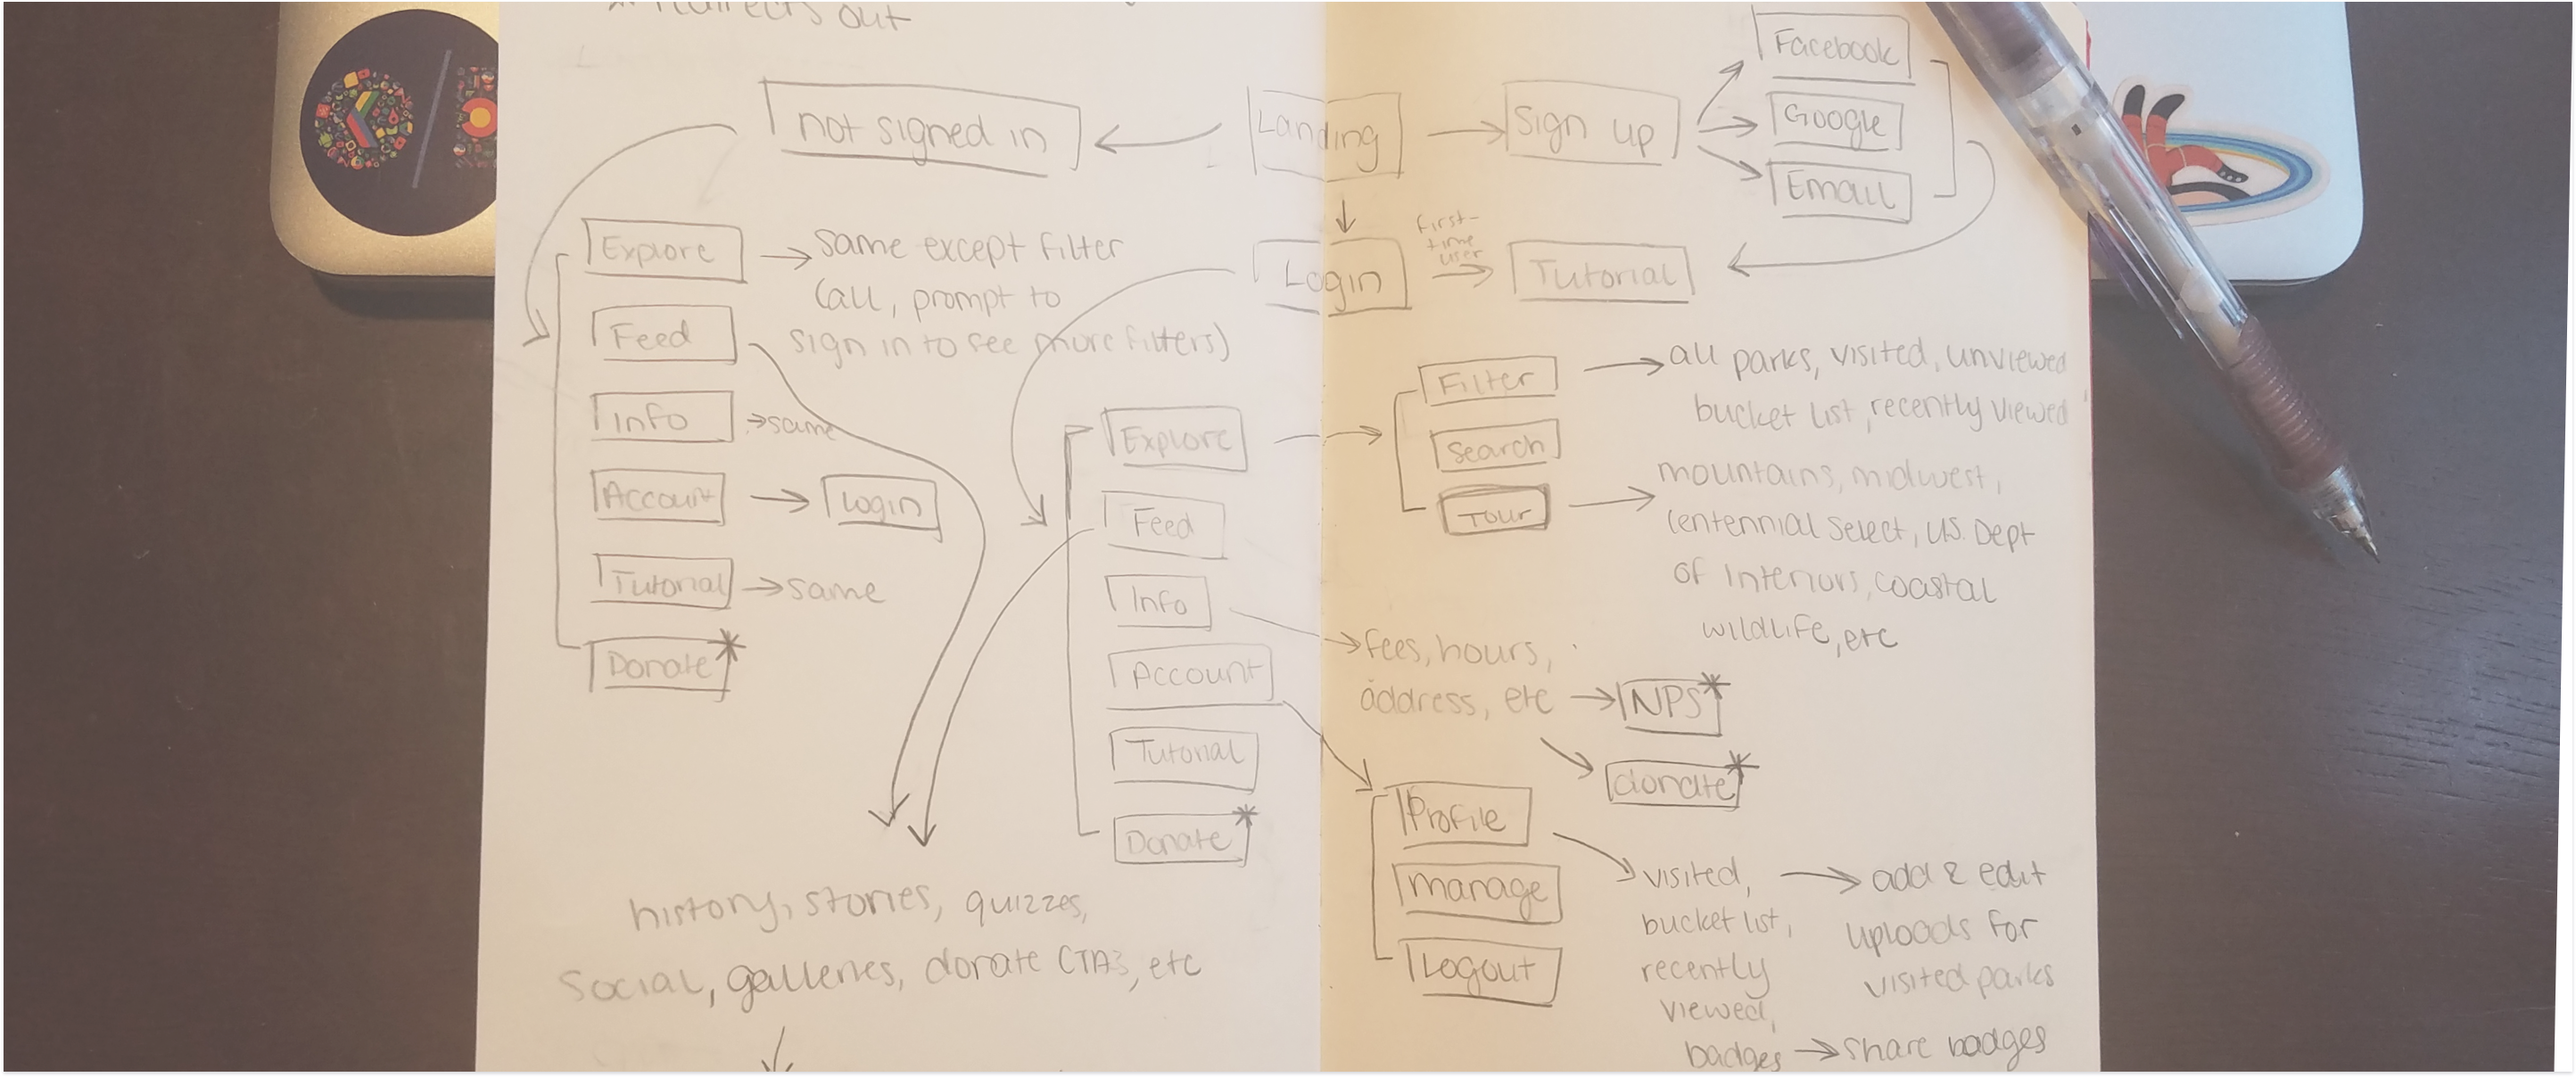 redirects out
not signed in
Landing
Sign up
Facebook
Google
Email
Explore
same except filter
(all, prompt to
sign in to see more filters)
Feed
Info
same
Account
Login
Tutorial
same
Donate*
Login
first-
time
user
Tutorial
Explore
Feed
Info
Account
Tutorial
Donate*
Filter
all parks, visited, unviewed
bucket list, recently viewed
Search
Tour
mountains, midwest,
Centennial Select, U.S. Dept
of Interiors, coastal
wildlife, etc
fees, hours,
address, etc
NPS*
donate*
Profile
manage
Logout
visited,
bucket list,
recently
viewed,
badges
add & edit
uploads for
visited parks
share badges
history, stories, quizzes,
social, galleries, donate CTAs, etc